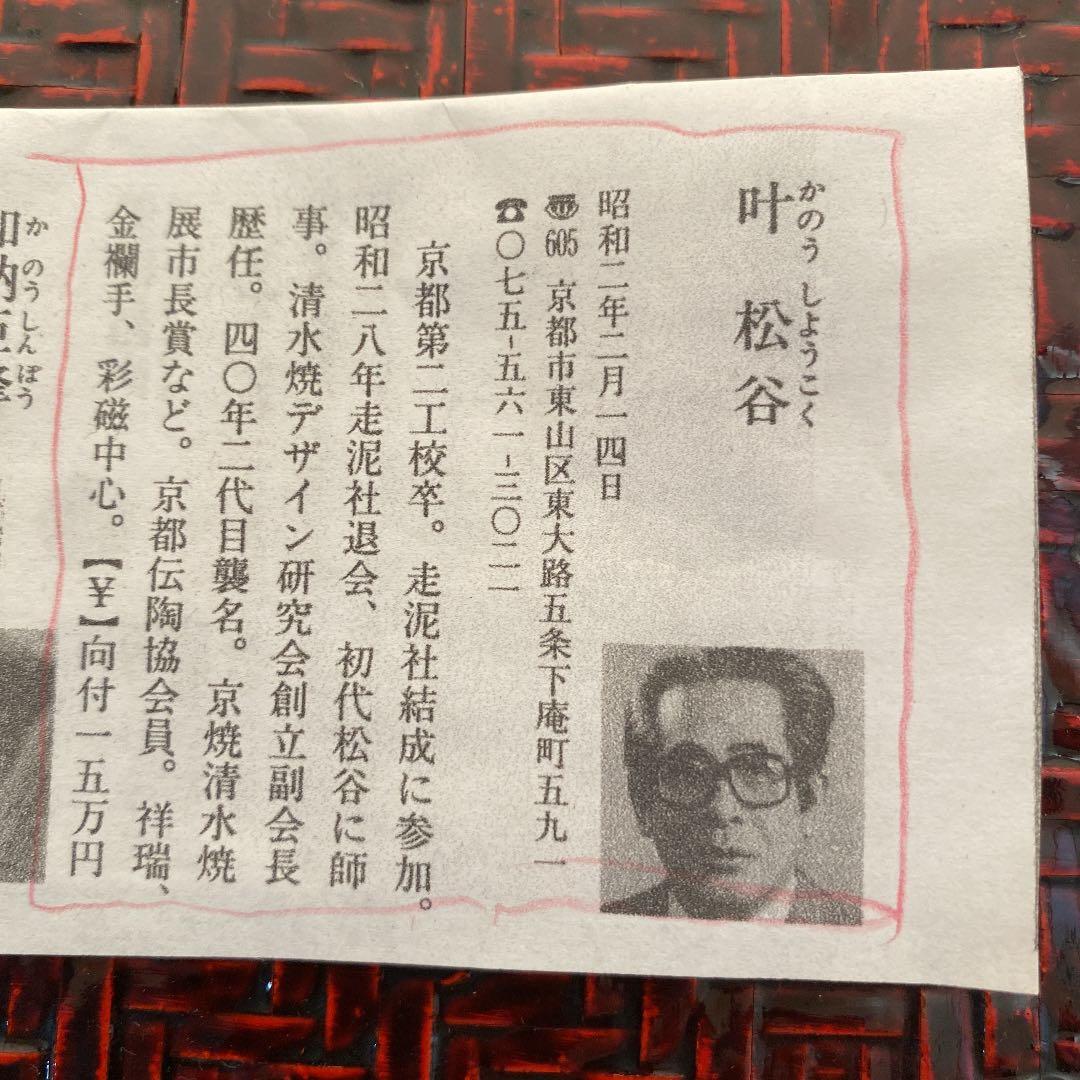 かのう しようこく
叶 松谷
昭和二年二月一四日
〠605 京都市東山区東大路五条下庵町五九一
☎〇七五-五六一-三〇二一
京都第二工校卒。走泥社結成に参加。
昭和二八年走泥社退会、初代松谷に師
事。清水焼デザイン研究会創立副会長
歴任。四〇年二代目襲名。京焼清水焼
展市長賞など。京都伝陶協会員。祥瑞、
金襴手、彩磁中心。【¥】向付一五万円
か のう しん ぽう